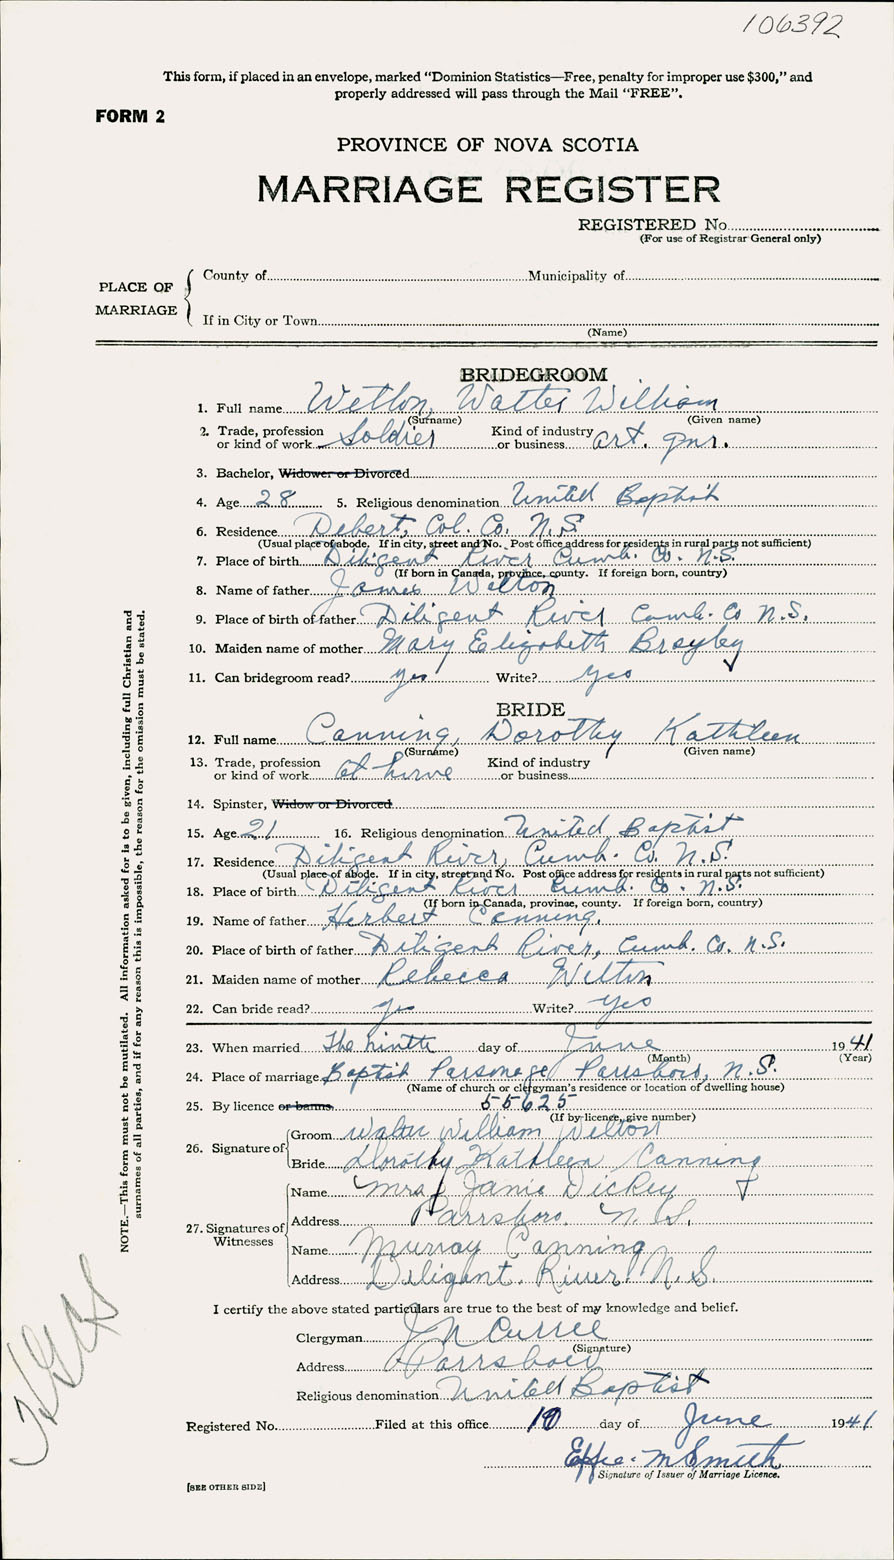 106392
This form, if placed in an envelope, marked “Dominion Statistics—Free, penalty for improper use $300,” and
properly addressed will pass through the Mail “FREE”.
FORM 2
PROVINCE OF NOVA SCOTIA
MARRIAGE REGISTER
REGISTERED No
(For use of Registrar General only)
PLACE OF MARRIAGE
County of Municipality of
If in City or Town
(Name)
BRIDEGROOM
1. Full name Welton, Walter William
(Surname) (Given name)
2. Trade, profession or kind of work Soldier Kind of industry or business art. gnr.
3. Bachelor, Widower or Divorced
4. Age 28 5. Religious denomination United Baptist
6. Residence Debert, Col. Co. N.S.
(Usual place of abode. If in city, street and No. Post office address for residents in rural parts not sufficient)
7. Place of birth Diligent River Cumb. Co. N.S.
(If born in Canada, province, county. If foreign born, country)
8. Name of father James Welton
9. Place of birth of father Diligent River Cumb. Co N.S.
10. Maiden name of mother Mary Elizabeth
11. Can bridegroom read? yes Write? yes
BRIDE
12. Full name Canning, Dorothy Kathleen
(Surname) (Given name)
13. Trade, profession or kind of work at home Kind of industry or business
14. Spinster, Widow or Divorced
15. Age 21 16. Religious denomination United Baptist
17. Residence Diligent River, Cumb. Co. N.S.
(Usual place of abode. If in city, street and No. Post office address for residents in rural parts not sufficient)
18. Place of birth Diligent River Cumb. Co. N.S.
(If born in Canada, province, county. If foreign born, country)
19. Name of father Herbert Canning.
20. Place of birth of father Diligent River, Cumb. Co. N.S.
21. Maiden name of mother Rebecca Welton
22. Can bride read? yes Write? yes
23. When married The ninth day of June 1941
(Month) (Year)
24. Place of marriage Baptist Parsonage Parrsboro, N.S.
(Name of church or clergyman's residence or location of dwelling house)
25. By licence or banns 55625
(If by licence, give number)
26. Signature of Groom Walter William Welton
Bride Dorothy Kathleen Canning
27. Signatures of Witnesses Name Mrs Janie Dickey
Address Parrsboro. N.S.
Name Murray Canning
Address Diligent. River. N.S.
I certify the above stated particulars are true to the best of my knowledge and belief.
Clergyman J N Currie
(Signature)
Address Parrsboro
Religious denomination United Baptist
Registered No. Filed at this office 10 day of June 1941
Effie. M Smith
Signature of Issuer of Marriage Licence.
[SEE OTHER SIDE]
NOTE.—This form must not be mutilated. All information asked for is to be given, including full Christian and
surnames of all parties, and if for any reason this is impossible, the reason for the omission must be stated.